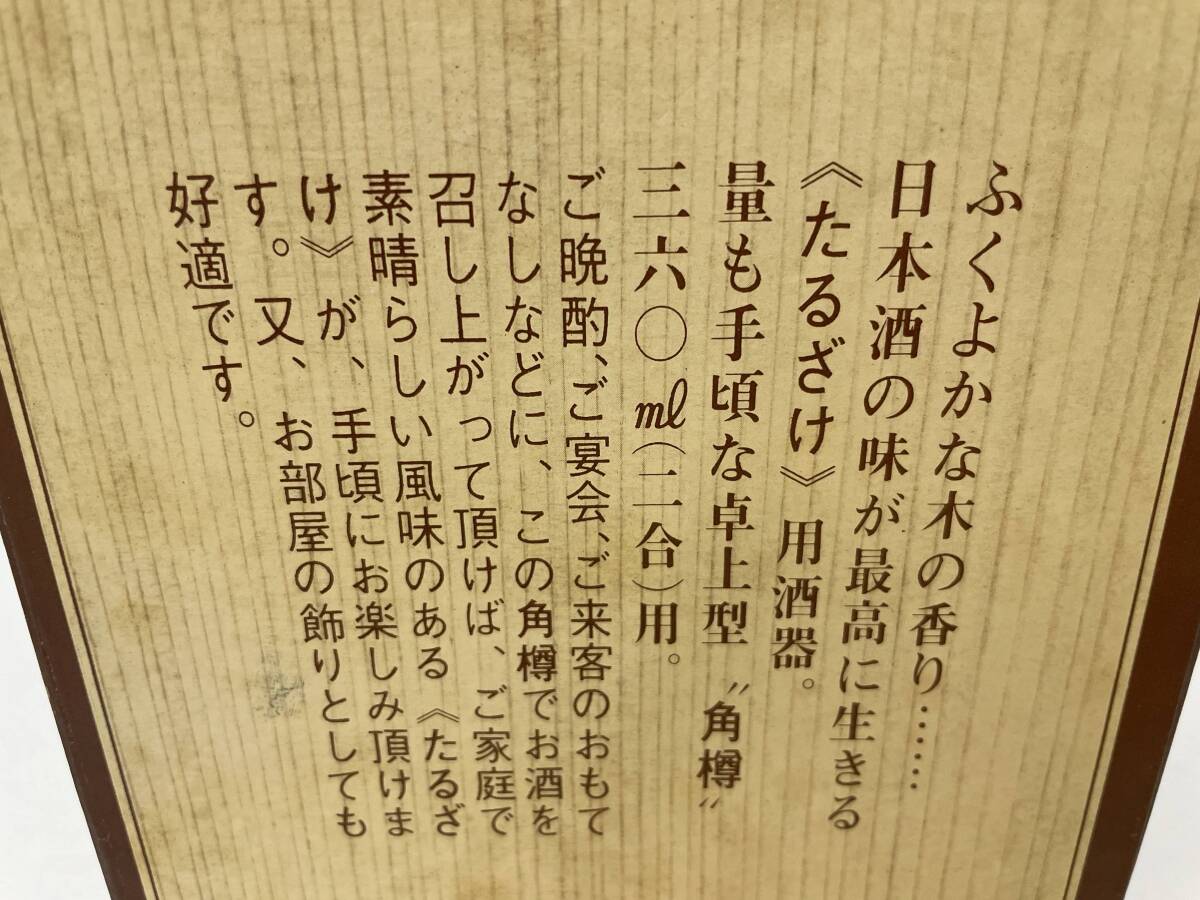 ふくよかな木の香り……
日本酒の味が最高に生きる
《たるざけ》用酒器。
量も手頃な卓上型〝角樽〟
三六〇㎖(二合)用。
ご晩酌、ご宴会、ご来客のおもて
なしなどに、この角樽でお酒を
召し上がって頂けば、ご家庭で
素晴らしい風味のある《たるざ
け》が、手頃にお楽しみ頂けま
す。又、お部屋の飾りとしても
好適です。